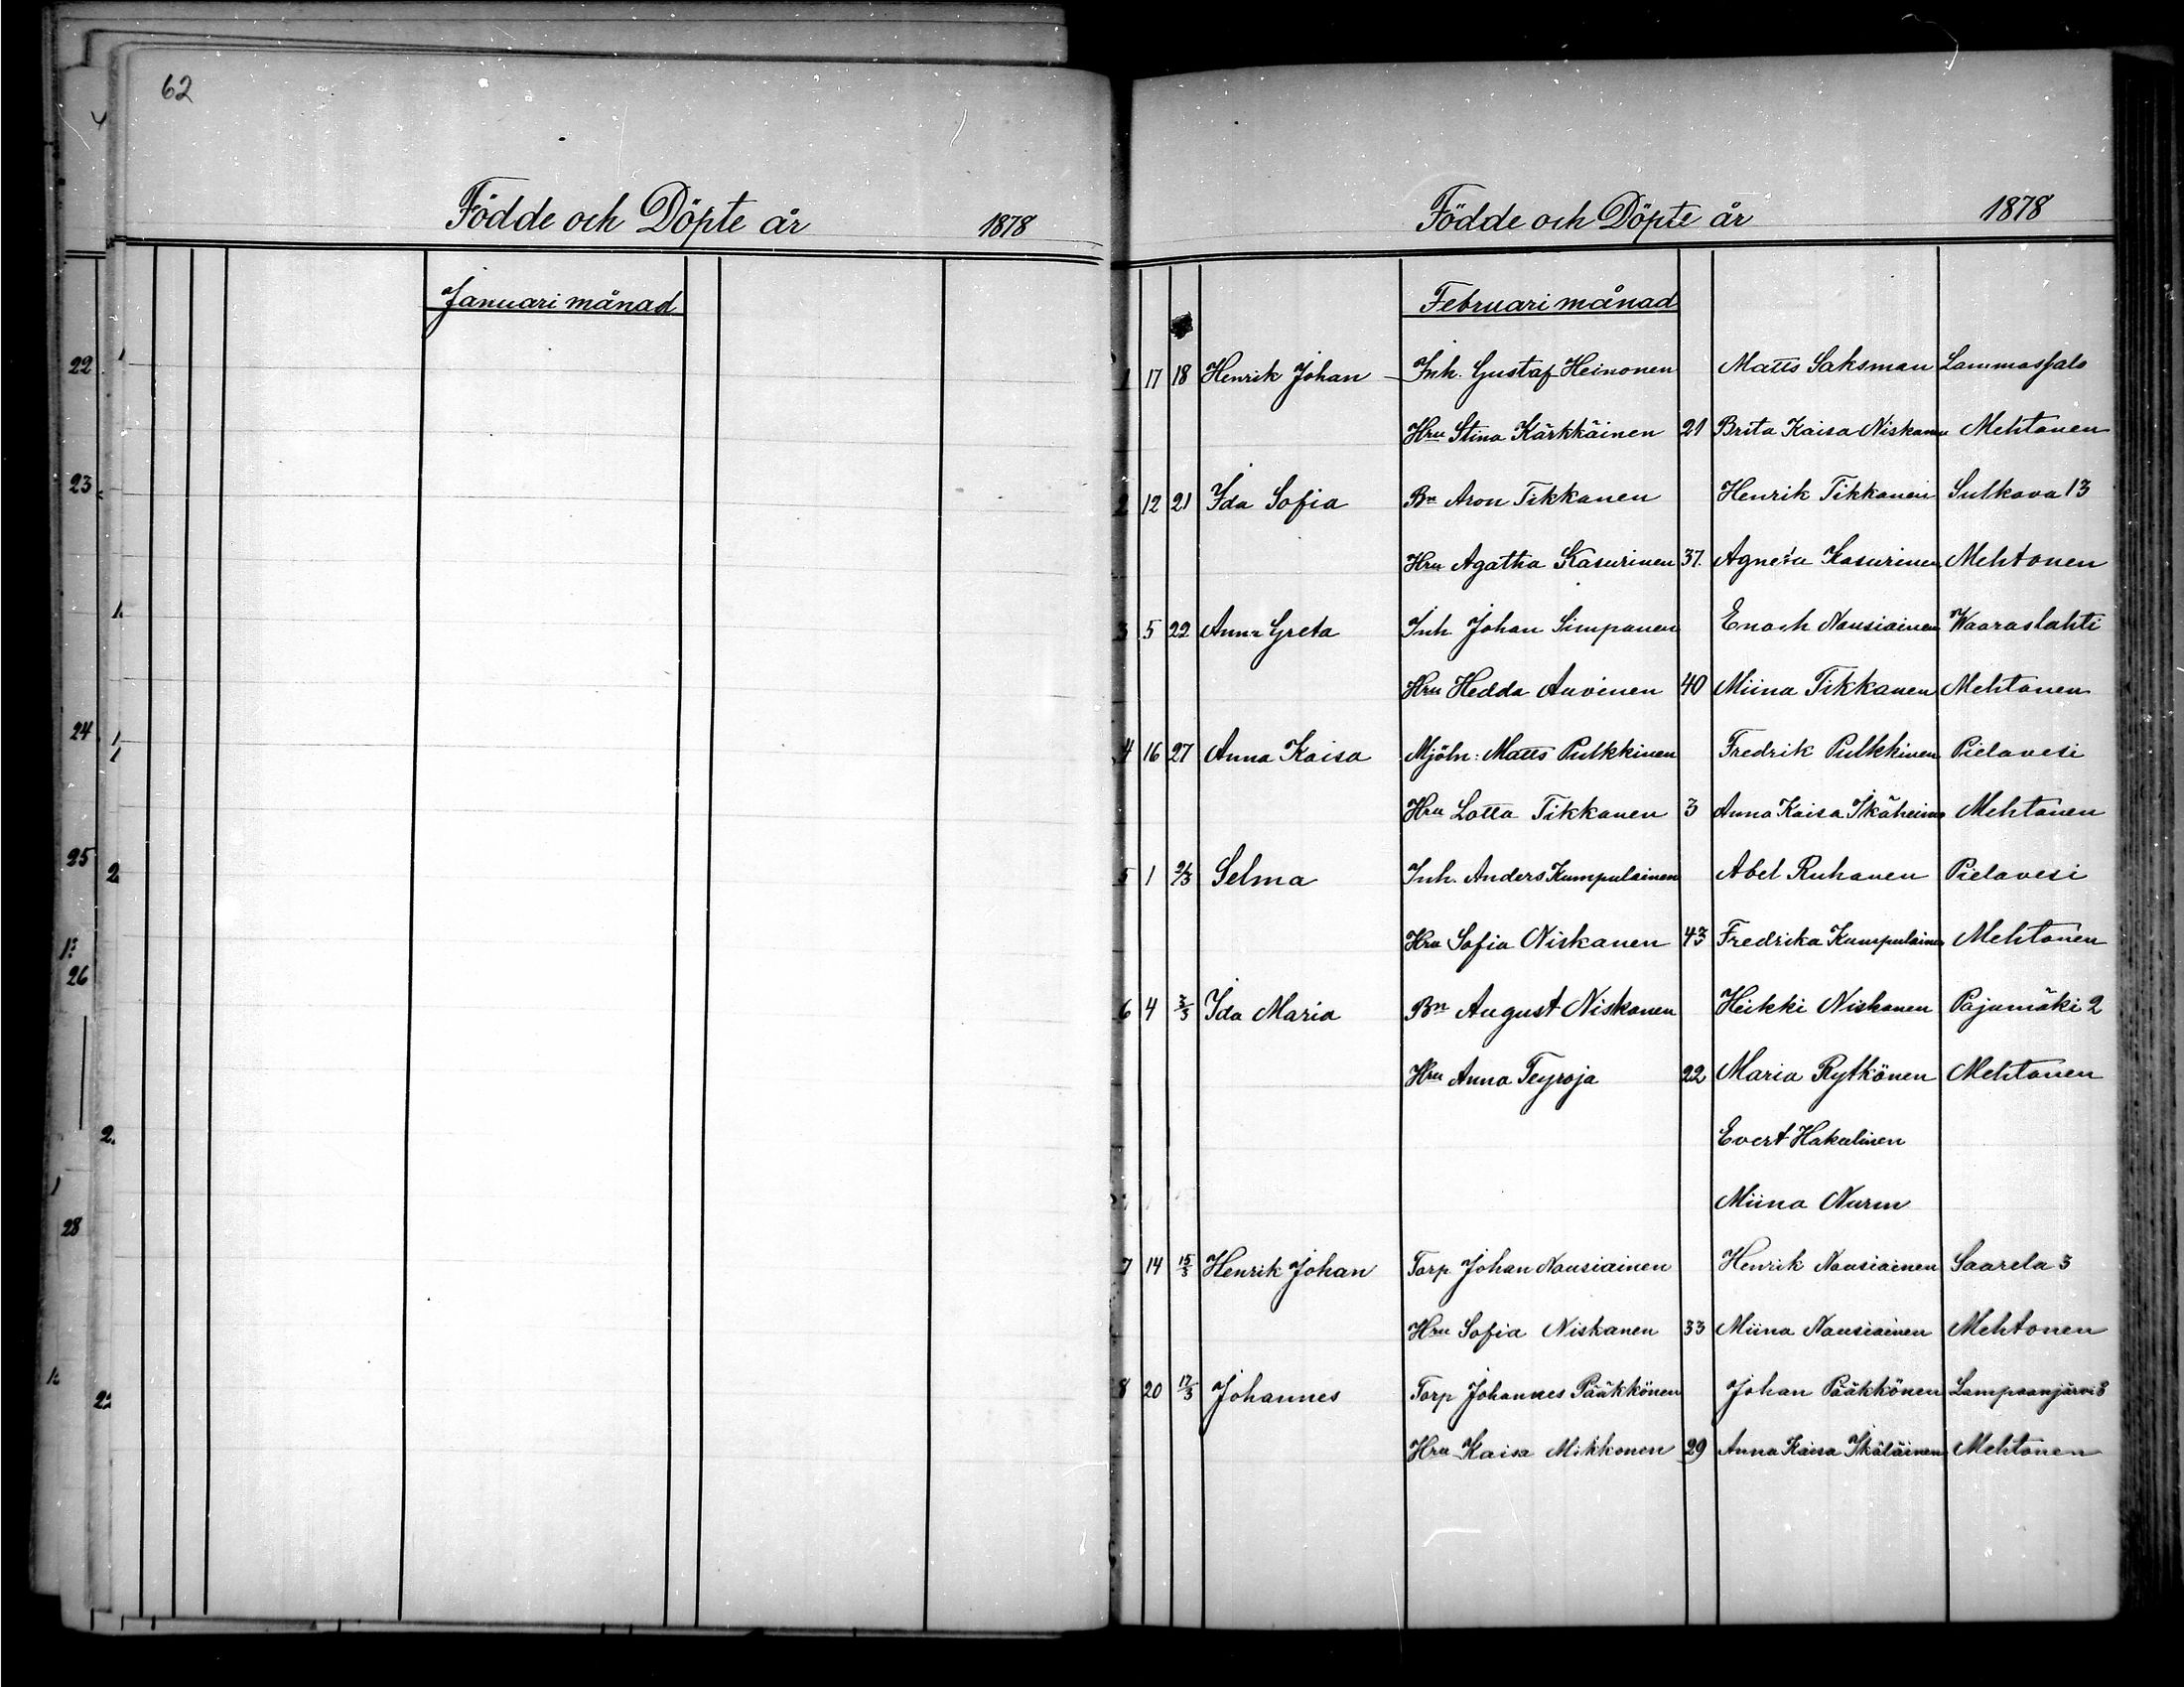 62
Födde och Döpte år 1878
Januari månad
22
23
24
25
26
28
Födde och Döpte år 1878
Februari månad
1 17 18 Henrik Johan Inh. Gustaf Heinonen Matts Saksman Lammassalo
Hru Stina Kärkkäinen 21 Brita Kaisa Niskanen Mehtonen
2 12 21 Ida Sofia Bn Aron Tikkanen Henrik Tikkanen Sulkava 13
Hru Agatha Kasurinen 37. Agneta Kasurinen Mehtonen
3 5 22 Anna Greta Inh Johan Simpanen Enoch Nousiainen Waaraslahti
Hru Hedda Auvinen 40 Miina Tikkanen Mehtonen
4 16 27 Anna Kaisa Mjöln: Matts Pulkkinen Fredrik Pulkkinen Pielavesi
Hru Lotta Tikkanen 3 Anna Kaisa Ikäheimo Mehtonen
5 1 2/3 Selma Inh. Anders Kumpulainen Abel Ruhanen Pielavesi
Hru Sofia Niskanen 43 Fredrika Kumpulainen Mehtonen
6 4 3/3 Ida Maria Bn August Niskanen Heikki Niskanen Pajumäki 2
Hru Anna Teyroja 22 Maria Rytkönen Mehtonen
Evert Hakulinen
Miina Nurm
7 14 15/3 Henrik Johan Torp Johan Nousiainen Henrik Nousiainen Saarela 3
Hru Sofia Niskanen 33 Miina Nousiainen Mehtonen
8 20 17/3 Johannes Torp Johannes Pääkkönen Johan Pääkkönen Lampaanjärvi 3
Hru Kaisa Mikkonen 29 Anna Kaisa Ikäläinen Mehtonen